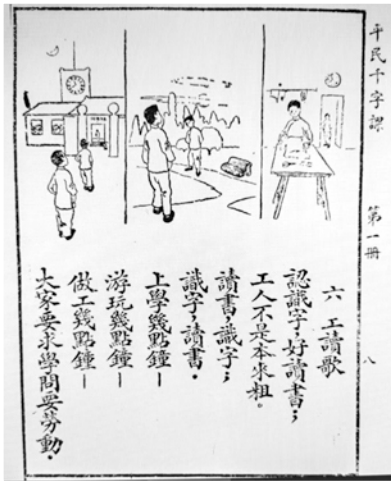 平民千字課
第一冊
八
六 工讀歌
認識字；好讀書；
工人不是本來粗。
讀書；識字；
識字；讀書．
上學幾點鐘—
游玩幾點鐘—
做工幾點鐘—
大家要求學問要勞動．